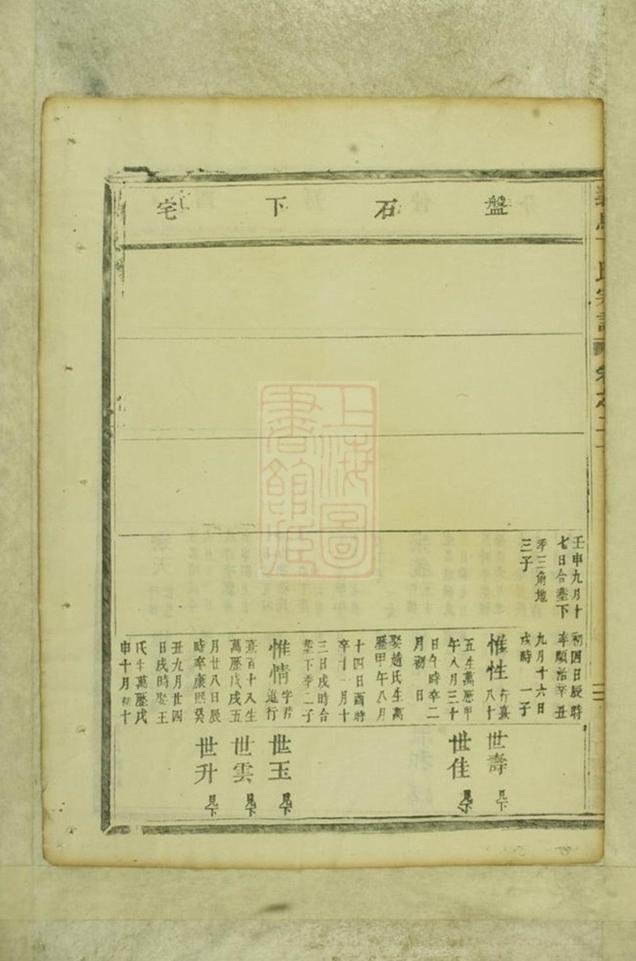 盤石下宅
壬申九月十
七日合塟下
季三角地
三子
初四日辰時
卒順治辛丑
九月十六日
戌時一子
惟性行熹
八十
五生萬歷甲
午八月三十
日午時卒二
月初日
娶趙氏生萬
歷甲午八月
十四日酉時
卒十一月十
三日戌時合
塟下季二子
惟情字君
進行
熹百十八生
萬歷戊戌五
月廿八日辰
時卒康熙癸
丑九月廿四
日戌時娶王
氏生萬歷戊
申十月初十
世壽見下
世佳見下
世玉見下
世雲見下
世升見下
上海圖
書館